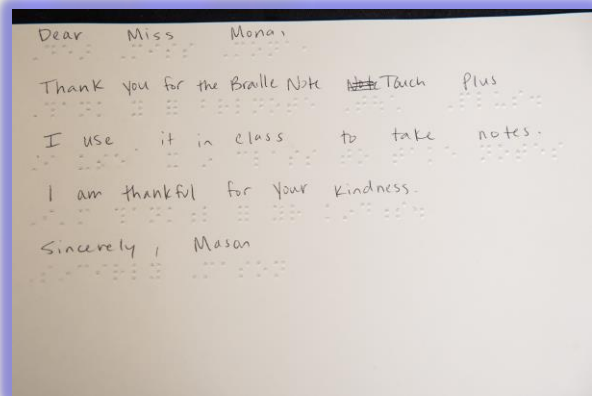 Dear Miss Mona,
Thank you for the Braille Note Touch Plus
I use it in class to take notes.
I am thankful for your kindness.
Sincerely, Mason